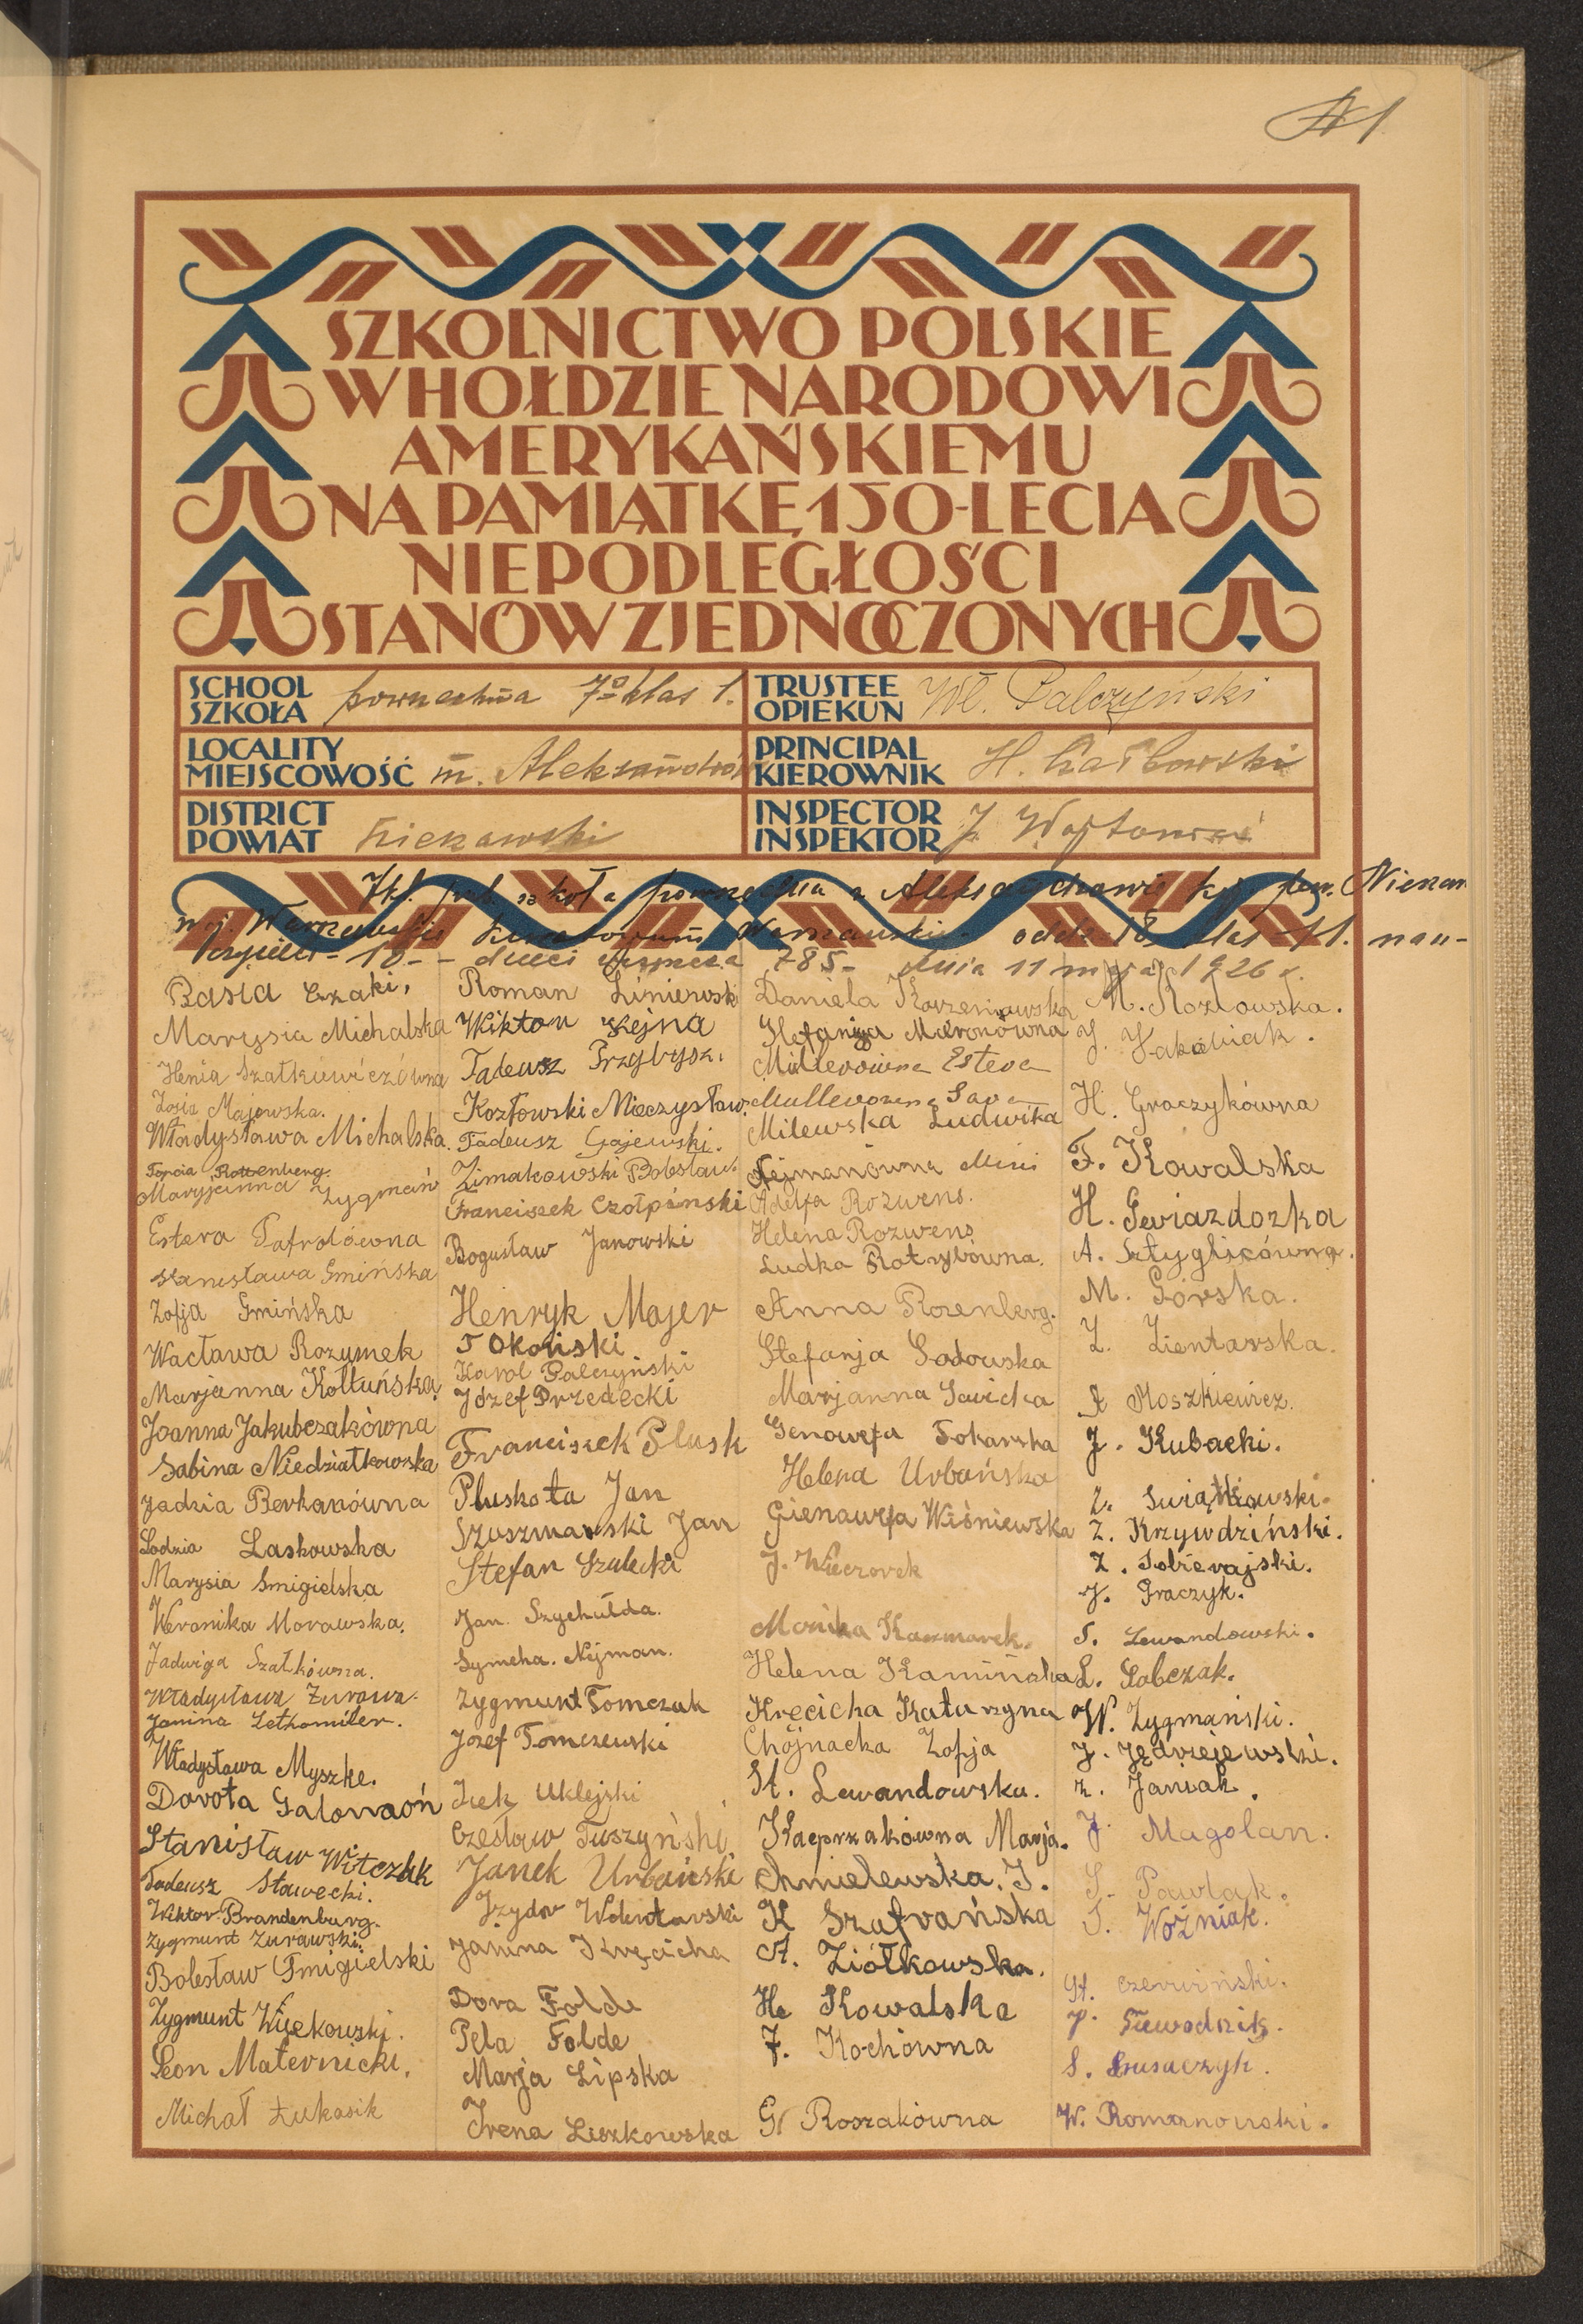 SZKOLNICTWO POLSKIE
W HOŁDZIE NARODOWI
AMERYKAŃSKIEMU
NA PAMIĄTKĘ 150-LECIA
NIEPODLEGŁOŚCI
STANÓW ZJEDNOCZONYCH
SCHOOL
SZKOŁA powszechna 7o klas 1.
TRUSTEE
OPIEKUN Wł. Palczyński
LOCALITY
MIEJSCOWOŚĆ m. Aleksandrów
PRINCIPAL
KIEROWNIK H.
DISTRICT
POWIAT Nieszawski
INSPECTOR
INSPEKTOR J. Wojtowicz
7kl. pub. szkoła powszechna z Aleksandrowie kuj. pow. Nieszaw
woj. Warszawskie Kuratorium Warszawskie oddz. 18 klas 11. nau-
czycieli - 10 - dzieci 785 - dnia 11 maja 1926 r.
Basia Czaki,
Marysia Michalska
Henia Szatkiewiczówna
Zosia Majewska.
Władysława Michalska.
Torcia Rottenberg.
Maryjanna Zygmań
Estera Tafrolówna
Stanisława Gmińska
Zofja Gmińska
Wacława Rozumek
Marjanna Kołtuńska
Joanna Jakubczakówna
Sabina Niedziałkowska
Jadzia Berkanówna
Lodzia Laskowska
Marysia Smigielska
Weronika Morawska.
Jadwiga Szatkówna.
Władysława Żurawa.
Janina Letkomiler.
Władysława Myszke.
Dorota Salomaoń
Stanisław Witczak
Tadeusz Sławecki.
Wiktor Brandenburg.
Zygmunt Żurawski.
Bolesław Śmigielski
Zygmunt Więckowski.
Leon Maternicki.
Michał Łukasik
Roman Liniewski
Wiktor Kejna
Tadeusz Przybysz.
Kozłowski Mieczysław
Tadeusz Gajewski.
Zimakowski Bolesław.
Franciszek Czołpiński
Bogusław Janowski
Henryk Majer
T Okoński
Karol Palczyński
Józef Przedecki
Franciszek Plusk
Pluskota Jan
Szuszmarski Jan
Stefan Szulecki
Jan. Szychulda.
Symcha. Nejman.
Zygmunt Tomczak
Józef Tomczewski
Icek Uklejski
Czesław Tuszyński
Janek Urbański
Izydor Włocławski
Janina Kręcicha
Dora Folde
Pela Folde
Marja Lipska
Irena Liszkowska
Daniela Korzeniowska
Stefanija Makronówna
Millerówna Estera
Mullerowna Sara
Milewska Ludwika
Nejmanówna Mini
Adelfa Rozwens.
Helena Rozwens
Ludka Rotrybówna.
Anna Rozenberg.
Stefanja Sadowska
Marjanna Sawicka
Genowefa Tokarska
Helena Urbańska
Gienowefa Wiśniewska
J. Wieczorek
Monika Kaczmarek.
Helena Kamińska
Kręcicha Katarzyna
Chojnacka Zofja
St. Lewandowska.
Kacprzakówna Marja.
Chmielewska. J.
K Szafrańska
A. Ziółkowska.
He Kowalska
F. Kochówna
G Roszakówna
M. Kozłowska.
J. Jakubiak.
H. Graczykówna
F. Kowalska
H. Gwiazdozka
A. Sztyglicówna.
M. Górska.
Z. Zientarska.
A Moszkiewicz.
J. Kubacki.
Z. Swiątkowski.
Z. Krzywdziński.
Z. Sobierajski.
J. Graczyk.
S. Lewandowski.
L. Sobczak.
W. Zygmański.
J. Jędrzejewski.
Z. Janiak.
J. Magolan.
S. Pawlak.
S. Woźniak.
St. Czerwiński.
W. Romanowski.